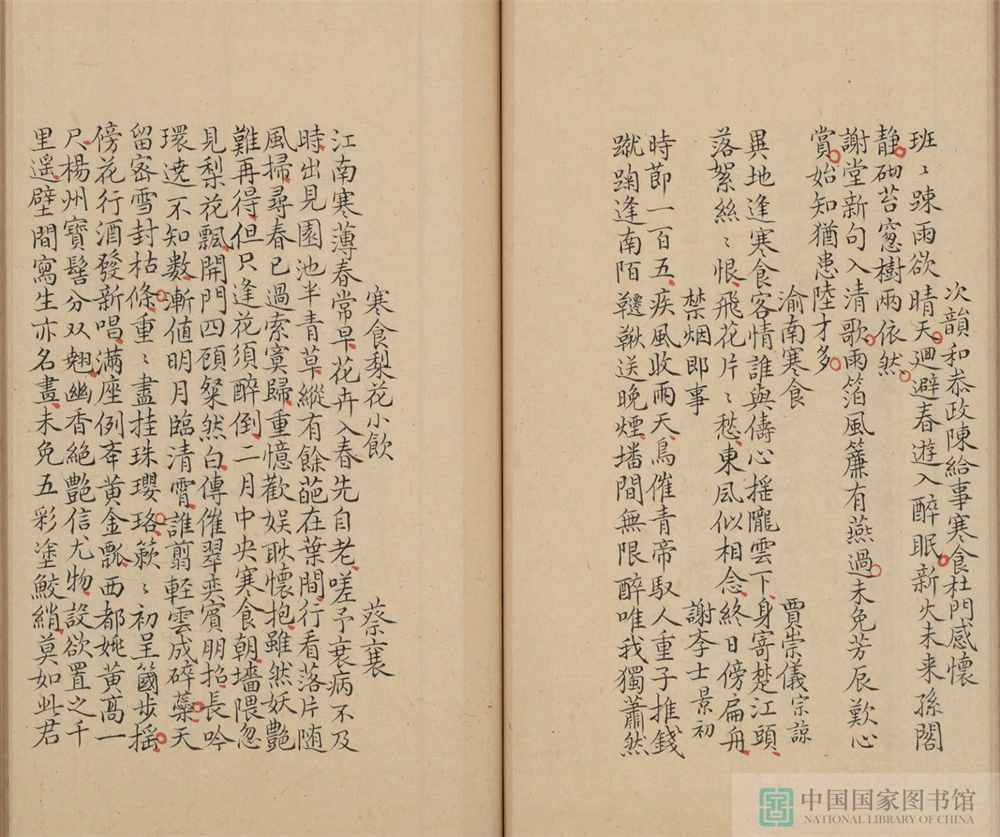 次韻和恭政陳給事寒食杜門感懷
班〻踈雨欲晴天廻避春遊入醉眠新火未来孫閣
静砌苔窓樹兩依然
謝堂新句入清歌雨箔風簾有燕過未免芳辰歎心
賞始知猶患陸才多
渝南寒食 賈崇儀宗諒
異地逢寒食客情誰與儔心摇隴雲下身寄楚江頭
落絮絲〻恨飛花片〻愁東風似相念終日傍扁舟
禁烟即事 謝李士景初
時節一百五疾風收雨天鳥催青帝馭人重子推錢
蹴踘逢南陌鞦韆送晚煙墦間無限醉唯我獨蕭然
寒食梨花小飲 蔡襄
江南寒薄春常早花卉入春先自老嗟予衰病不及
時出見園池半青草縱有餘葩在葉間行看落片随
風掃尋春已過索寞歸重憶歡娱耿懷抱雖然妖艷
難再得但只逢花須醉倒二月中央寒食朝墻隈忽
見梨花飄開門四顧粲然白傳催翠奕賓朋招長吟
環遶不知數漸值明月臨清霄誰翦輕雲成碎蘂天
留密雪封枯條重〻盡挂珠瓔珞蔌〻初呈箇步摇
傍花行酒發新唱滿座例夲黄金瓢西都姚黄高一
尺楊州寶髻分双翹幽香絶艷信尤物設欲置之千
里遥壁間寫生亦名畫未免五彩塗鮫綃莫如此君
中国国家图书馆
NATIONAL LIBRARY OF CHINA